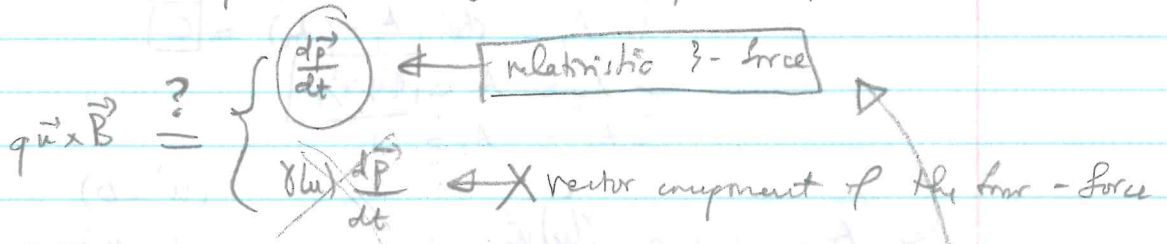 qu⃗ × B⃗ ≟ { dp⃗/dt ← relativistic 3-force
γ(u) dp⃗/dt ← X vector component of the four-force